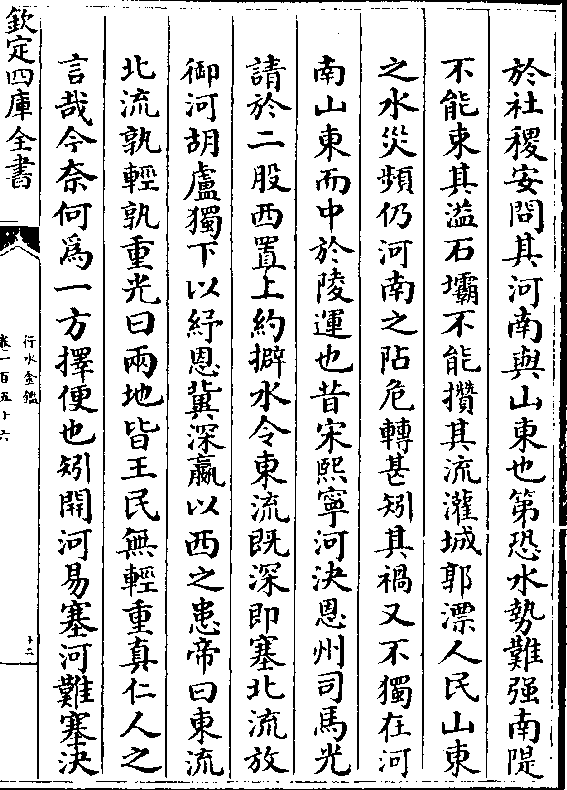 於社稷安問其河南與山東也第恐水勢難强南隄
不能東其溢石壩不能攢其流灌城郭漂人民山東
之水災頻仍河南之阽危轉甚矧其禍又不獨在河
南山東而中於陵運也昔宋熙寧河決恩州司馬光
請於二股西置上約擗水令東流既深即塞北流放
御河胡盧獨下以紓恩冀深瀛以西之患帝曰東流
北流孰輕孰重光曰兩地皆王民無輕重真仁人之
言哉今奈何爲一方擇便也矧開河易塞河難塞決
欽定四庫全書
行水金鑑
卷一百五十六
十二